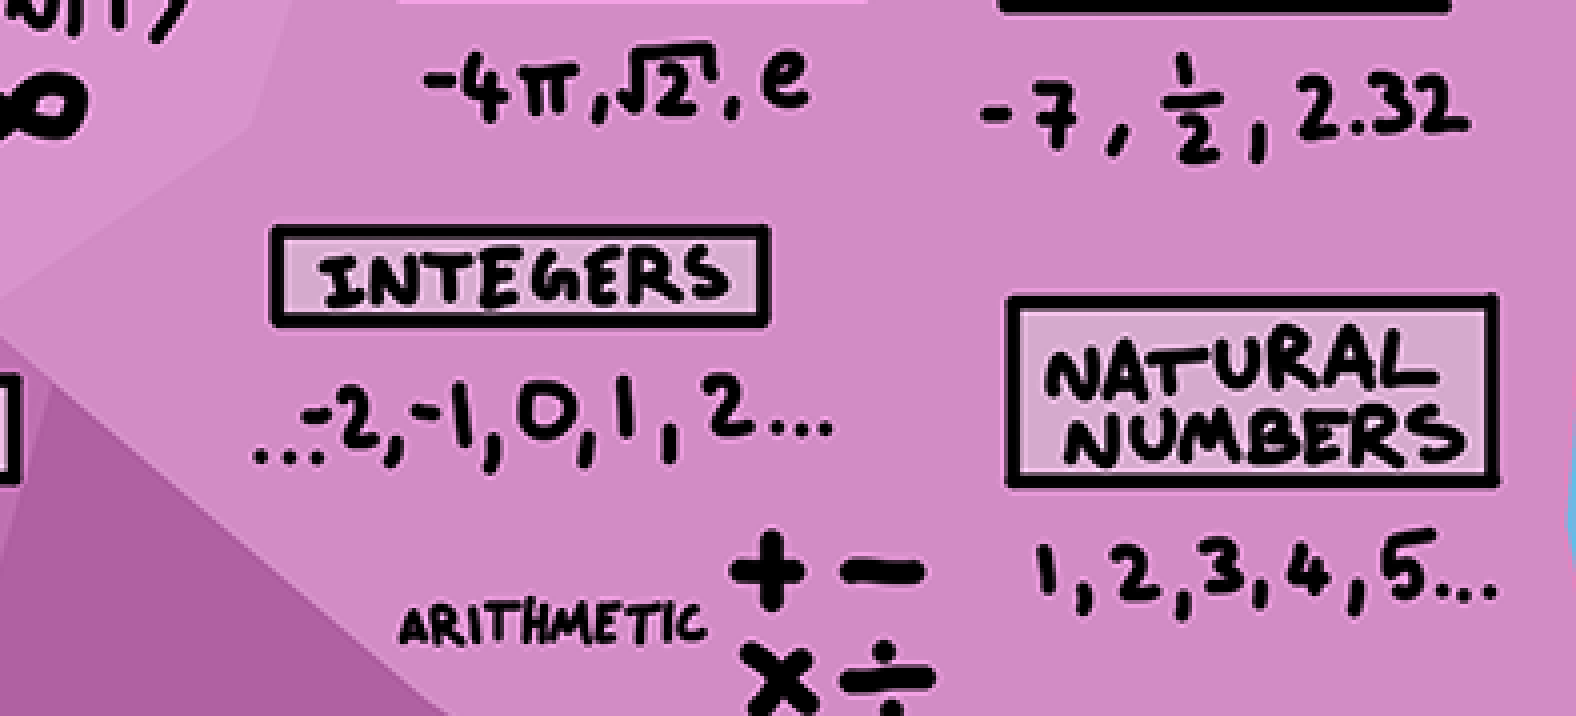 ∞
-4π, √2, e
-7, 1/2, 2.32
INTEGERS
...-2, -1, 0, 1, 2...
NATURAL
NUMBERS
1, 2, 3, 4, 5...
ARITHMETIC
+ -
× ÷